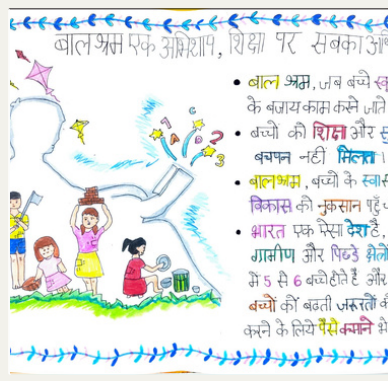 बाल श्रम एक अभिशाप, शिक्षा पर सबका
• बाल श्रम, जब बच्चे
के बजाय काम करने जाते
• बच्चो को शिक्षा और
बचपन नहीं मिलता।
• बालश्रम, बच्चों के
विकास को नुकसान
• भारत एक ऐसा देश है,
ग्रामीण और पिछडे
में 5 से 6 बच्चे होते है और
बच्चों की बढती जरूरतों
करने के लिये पैसे कमाने
1 6 2 3